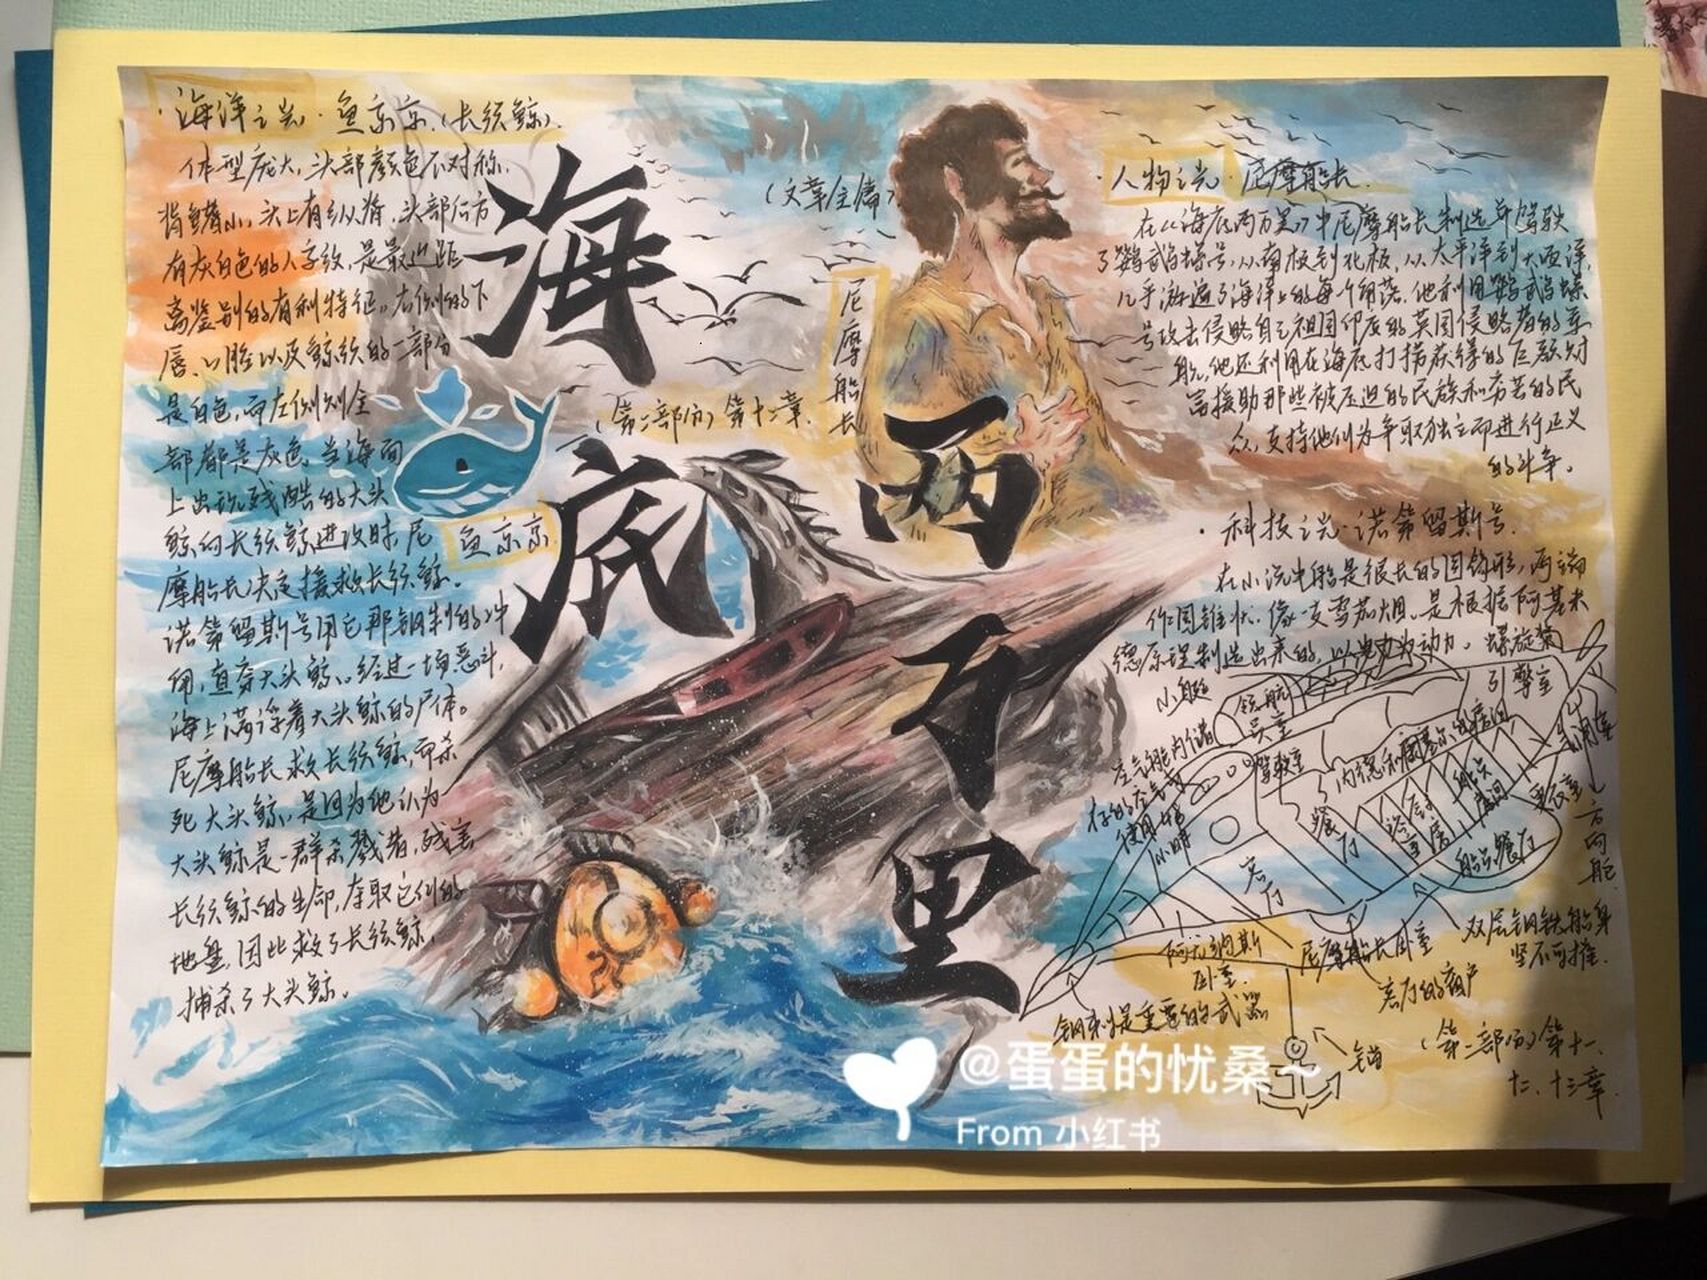 ·海洋之说·鱼京京.(长须鲸).
体型庞大,头部颜色不对称.
背鳍小,头上有纵脊,头部后方
有灰白色的人字纹,是最近距
离鉴别的有利特征。右侧的下
唇、口腔以及鲸须的一部分
是白色,而左侧则全
部都是灰色。当海面
上出现残酷的大头
鲸向长须鲸进攻时,尼
摩船长决定援救长须鲸。
诺第留斯号用它那钢制的冲
角,直穿大头鲸。经过一场恶斗,
海上满浮着大头鲸的尸体。
尼摩船长救长须鲸,而杀
死大头鲸,是因为他认为
大头鲸是一群杀戮者,残害
长须鲸的生命,夺取它们的
地盘,因此救了长须鲸,
捕杀了大头鲸。
鱼京京
海底
两万里
(文章全篇)
尼摩船长
(第二部分)第十二章.
·人物之说·尼摩船长.
在《海底两万里》中尼摩船长制造并驾驶
了鹦鹉螺号,从南极到北极,从太平洋到大西洋,
几乎游遍了海洋上的每个角落.他利用鹦鹉螺
号攻击侵略自己祖国印度的英国侵略者的军
船,他还利用在海底打捞获得的巨额财
富援助那些被压迫的民族和穷苦的民
众,支持他们为争取独立而进行正义
的斗争。
·科技之说·诺第留斯号.
在小说中船是很长的圆筒形,两端
作圆锥状.像一支雪茄烟.是根据阿基米
德原理制造出来的,以电力为动力。螺旋桨
小艇
领航
员室
引擎室
空气舱内储
存的空气可
使用
小时
驾驶室
内德和
房间
餐厅
船员
房间
客厅
船员餐厅
方向舵
阿龙纳斯
卧室.
尼摩船长卧室
双层钢铁船身
坚不可摧.
客厅的窗户
钢刺是重要的武器
锚
(第一部分)第十一、
十二、十三章.
@蛋蛋的忧桑~
From 小红书